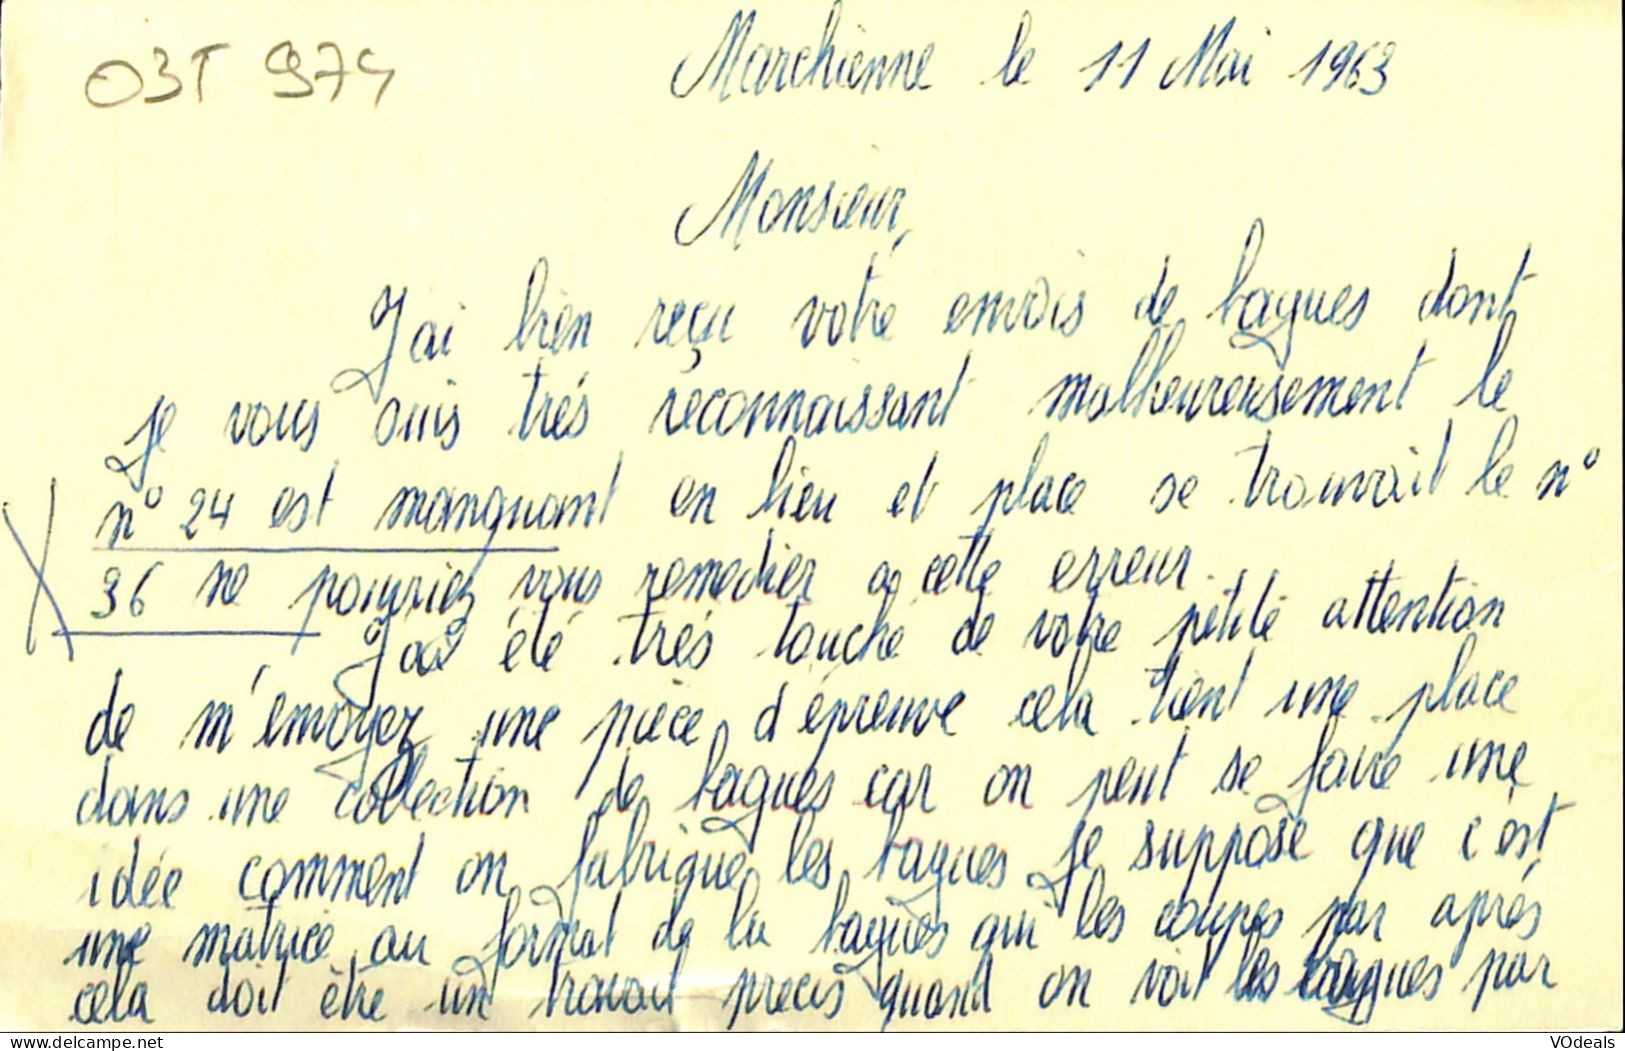 O3T 974
Marchienne le 11 Mai 1963
Monsieur,
J'ai bien reçu votre envois de bagues dont
je vous suis trés réconnaissant malheureusement le
n° 24 est manquant en lieu et place se trouvait le n°
36 ne pouyriez vous remedier a cette erreur.
J'ai été trés touché de votre pétite attention
de m'envoyez une pièce d'épreuve cela tient une place
dans une collection de bagues car on peut se faire une
idée comment on fabrique les bagues je suppose que c'est
une matrice au format de la bagues qui les coupes par aprés
cela doit être un travail precis quand on voit les bagues par
delcampe.net
VOdeals